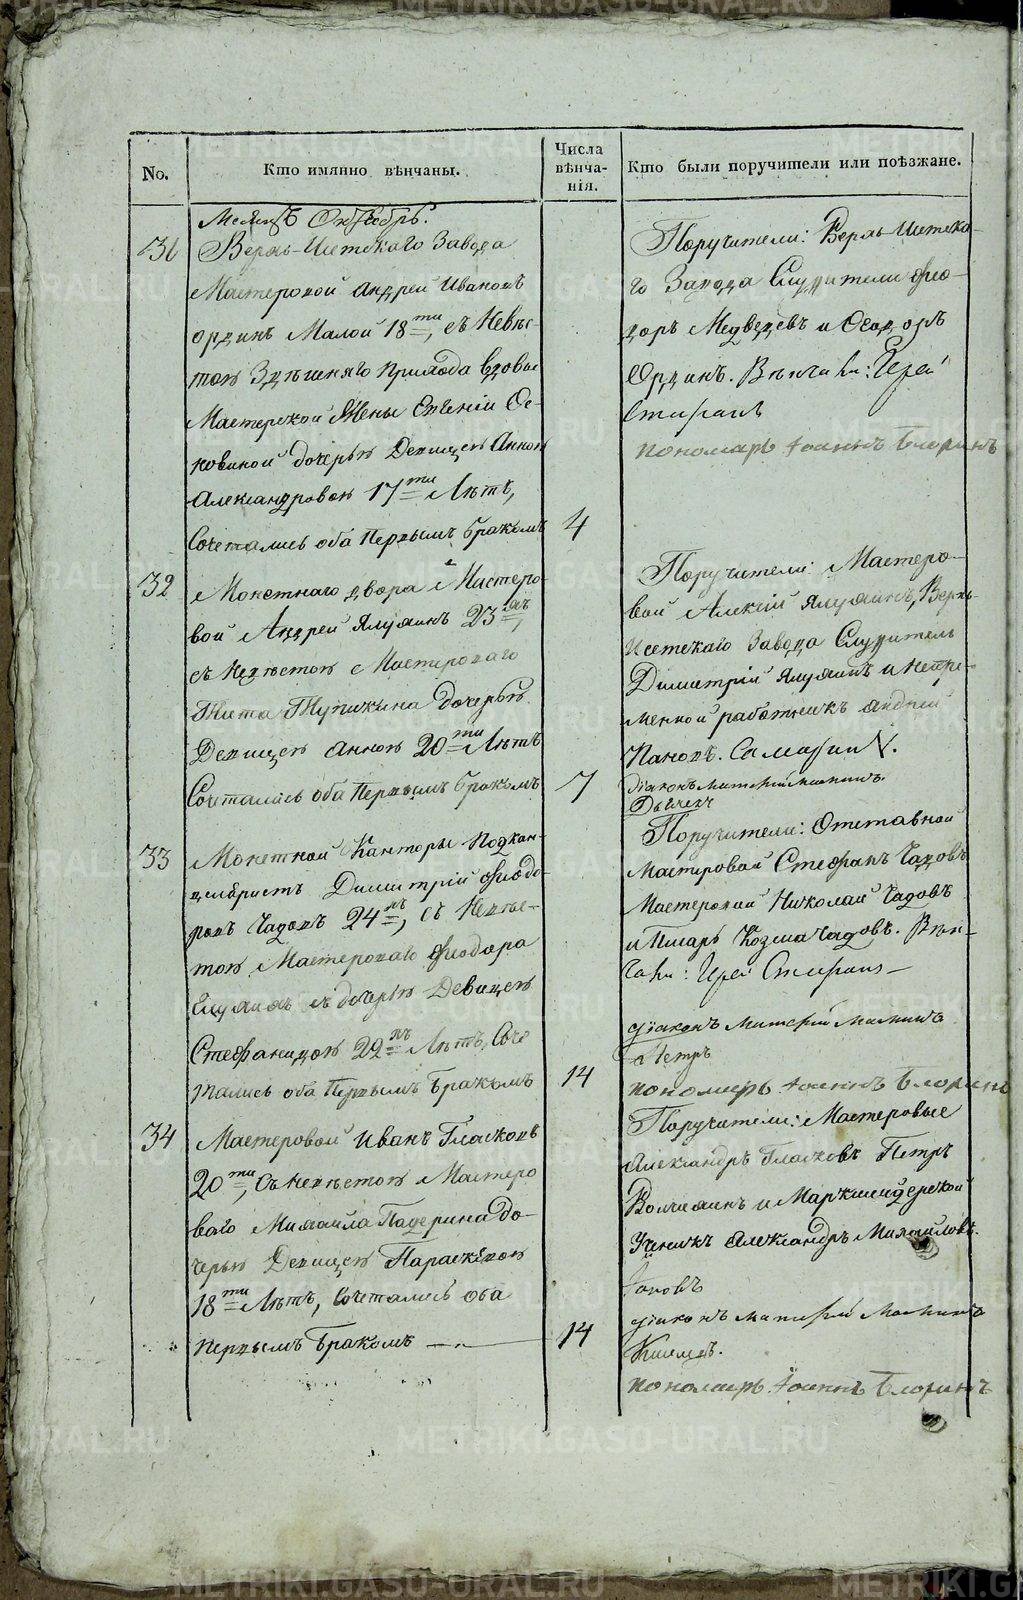 No.
Кто имянно вѣнчаны.
Числа
вѣнча-
нія.
Кто были поручители или поѣзжане.
Месяцъ Октябрь.
31
Верхъ-Исетскаго Завода
Мастеровой Андрей Ивановъ
Ординъ Малой 18ти, съ Невѣс-
тою Здѣшняго прихода вдовы
Мастерской Жены
дочерью Девицею Анною
Александровою 17ти Лѣтъ,
Сочетались оба Первымъ бракомъ
4
Поручители: Верхъ-Исетска-
го Завода Служители Фео-
доръ Медведевъ и Феодоръ
Ординъ. Вѣнчали: Іерей
Стефанъ
пономарь Іоаннъ
32
Монетнаго двора Мастеро-
вой Андрей Ялунинъ 23хъ,
съ Невѣстою Мастероваго
Тита Тупикина дочерью
Девицею Анною 20ти Лѣтъ
Сочетались оба Первымъ бракомъ
7
Поручители: Мастеро-
вой Алексій Ялунинъ, Верхъ-
Исетскаго Завода Служитель
Димитрій Ялунинъ и Непре-
менной работникъ Андрей
Пановъ.
діаконъ
Дьячекъ
33
Монетной Канторы Подкан-
целяристъ Димитрій Феодо-
ровъ Чадовъ 24хъ, съ Невѣс-
тою Мастероваго Феодора
дочерью Девицею
Стефанидою 22хъ Лѣтъ, Соче
тались оба Первымъ бракомъ
14
Поручители: Отставной
Мастеровой Стефанъ Чадовъ
Мастеровой Николай Чадовъ
и Писарь Козма Чадовъ. Вѣн-
чали: Іерей Стефанъ
діаконъ
Петръ
пономарь Іоаннъ
34
Мастеровой Иванъ Гласковъ
20ти, Съ Невѣстою Мастеро
ваго Михаила Падерина до-
черью Девицею Параскевою
18ти Лѣтъ, Сочетались оба
Первымъ бракомъ
14
Поручители: Мастеровые
Александръ Гласковъ Петръ
и Маркшейдерской
Ученикъ Александръ Михайловъ.
діаконъ
пономарь Іоаннъ
METRIKI.GASO-URAL.RU